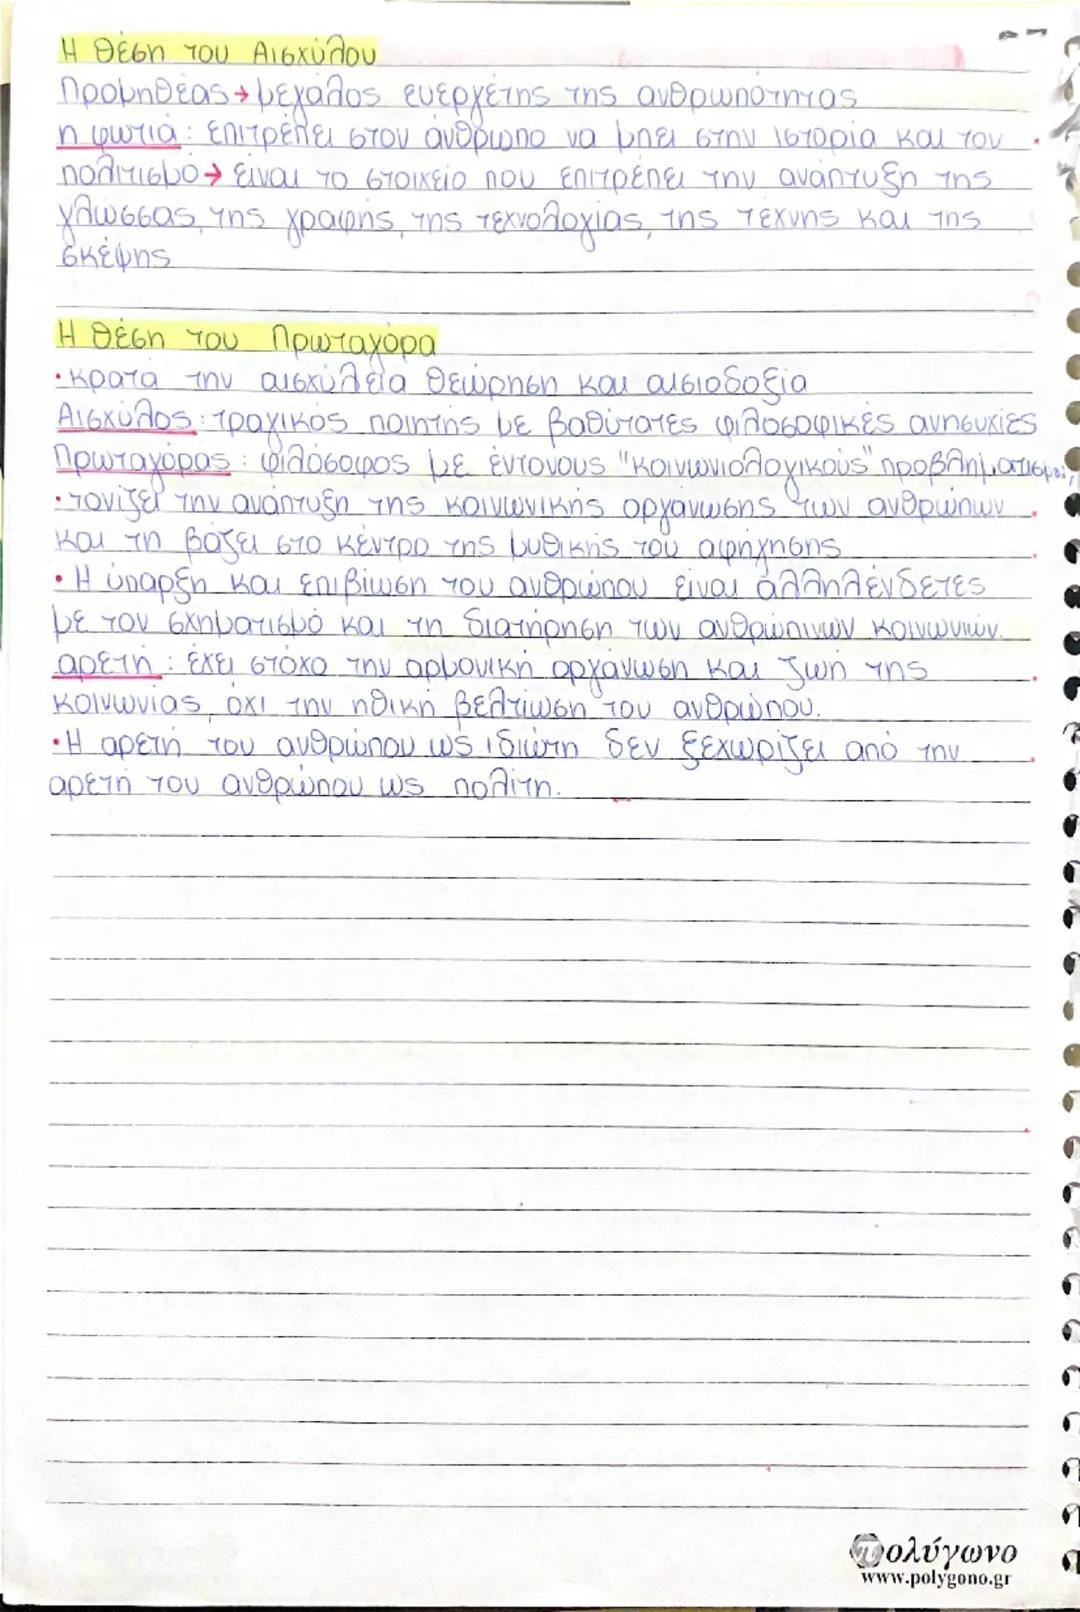 Η θέση του Αισχύλου
Προμηθέας → μεγάλος ευεργέτης της ανθρωπότητας
η φωτιά : επιτρέπει στον άνθρωπο να μπει στην ιστορία και τον
πολιτισμό → είναι το στοιχείο που επιτρέπει την ανάπτυξη της
γλώσσας, της γραφής, της τεχνολογίας, της τέχνης και της
σκέψης
Η θέση του Πρωταγόρα
• κρατά την αισχύλεια θεώρηση και αισιοδοξία
Αισχύλος : τραγικός ποιητής με βαθύτατες φιλοσοφικές ανησυχίες
Πρωταγόρας : φιλόσοφος με έντονους "κοινωνιολογικούς" προβληματισμούς
• τονίζει την ανάπτυξη της κοινωνικής οργάνωσης των ανθρώπων
και τη βάζει στο κέντρο της μυθικής του αφήγησης
• Η ύπαρξη και επιβίωση του ανθρώπου είναι αλληλένδετες
με τον σχηματισμό και τη διατήρηση των ανθρώπινων κοινωνιών.
αρετή : έχει στόχο την αρμονική οργάνωση και ζωή της
κοινωνίας, όχι την ηθική βελτίωση του ανθρώπου.
• Η αρετή του ανθρώπου ως ιδιώτη δεν ξεχωρίζει από την
αρετή του ανθρώπου ως πολίτη.
πολύγωνο
www.polygono.gr